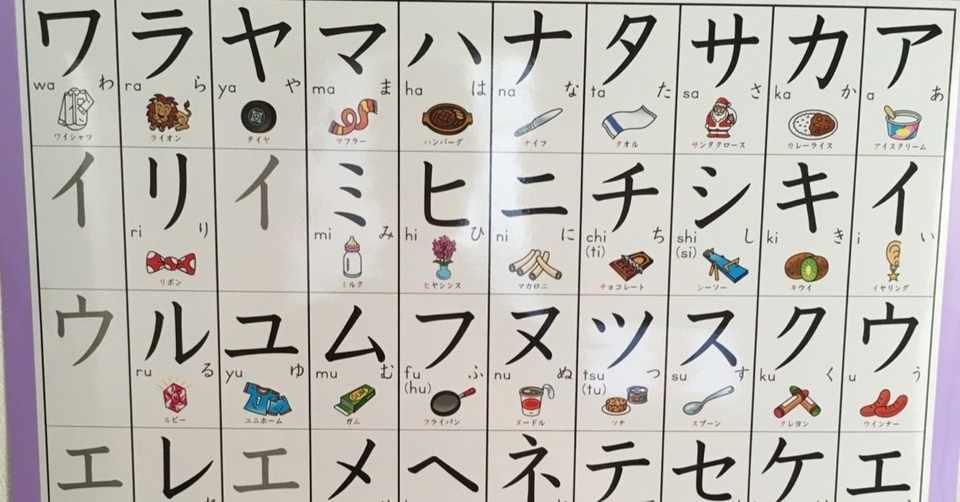 ワ ラ ヤ マ ハ ナ タ サ カ ア
wa わ ra ら ya や ma ま ha は na な ta た sa さ ka か a あ
ワイシャツ ライオン タイヤ マフラー ハンバーグ ナイフ タオル サンタクロース カレーライス アイスクリーム
イ リ イ ミ ヒ ニ チ シ キ イ
ri り mi み hi ひ ni に chi ち shi し ki き i い
(ti) (si)
リボン ミルク ヒヤシンス マカロニ チョコレート シーソー キウイ イヤリング
ウ ル ユ ム フ ヌ ツ ス ク ウ
ru る yu ゆ mu む fu ふ nu ぬ tsu つ su す ku く u う
(hu) (tu)
ルビー ユニホーム ガム フライパン ヌードル ツナ スプーン クレヨン ウインナー
エ レ エ メ ヘ ネ テ セ ケ エ